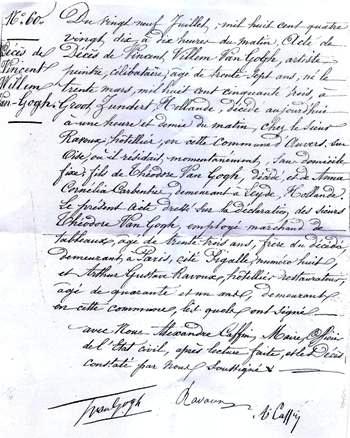 No. 60.
Décès de
Vincent
Willem
Van-Gogh
Du vingt neuf Juillet, mil huit cent quatre
vingt, dix, à dix heures du matin, Acte de
Décès de Vincent, Willem Van Gogh, artiste
peintre, célibataire, agé de trente sept ans, né le
trente mars, mil huit cent cinquante trois, à
Groot Zundert Hollande, décédé aujourd'hui
à une heure et demie du matin, chez le Sieur
Ravoux, hôtellier, en cette commune d'Auvers sur
Oise, où il résidait, momentanément, sans domicile
fixe; fils de Théodore Van Gogh, décédé, et de Anna
Cornélia Carbentus demeurant à Leyde, Hollande.
Le présent Acte dressé sur la déclaration, des sieurs
Théodore Van Gogh, employé marchand de
tableaux, agé de trente trois ans, frère du décédé,
demeurant à Paris, cité Pigalle, numéro huit
et Arthur Gustave Ravoux, hôtellier restaurateur,
agé de quarante et un ans, demeurant
en cette commune, Lesquels ont signé
avec Nous Alexandre Caffin, Maire, Officier
de l'Etat civil, après lecture faite, et le Décès
constaté par Nous Soussigné
van Gogh
Ravoux
Caffin